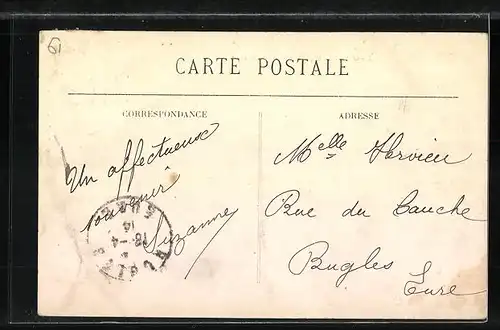 61
CARTE POSTALE
CORRESPONDANCE
ADRESSE
Un affectueux
souvenir
Suzanne
Melle Hervieu
Rue du Canche
Rugles
Eure
EURE
18-4
14